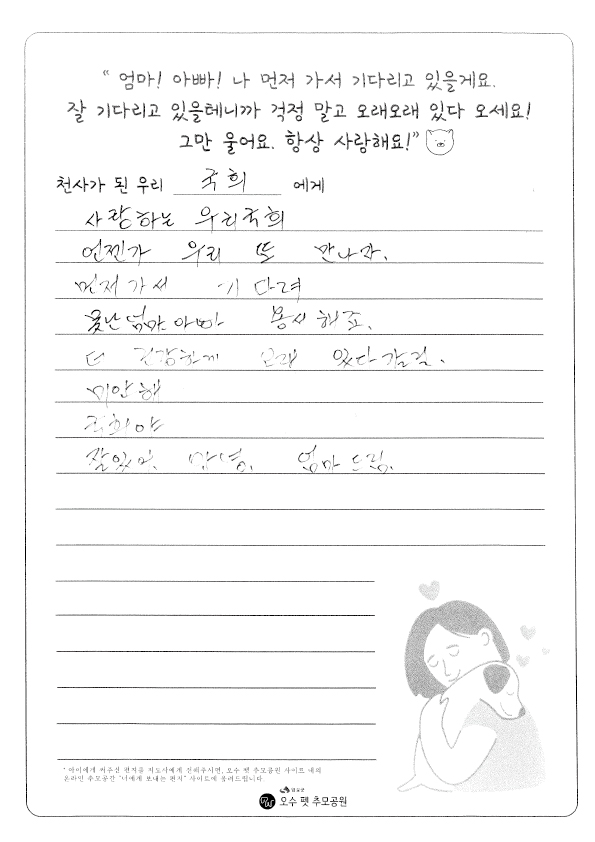 “ 엄마! 아빠! 나 먼저 가서 기다리고 있을게요.
잘 기다리고 있을테니까 걱정 말고 오래오래 있다 오세요!
그만 울어요. 항상 사랑해요!”
천사가 된 우리 국희 에게
사랑하는 우리국희
언젠가 우리 또 만나자.
먼저 가서 기다려
못난 엄마 아빠 용서해죠.
더 건강하게 오래 있다갈걸.
미안해
국희야
잘있어. 안녕. 엄마 드림.
* 아이에게 써주신 편지를 지도사에게 전해주시면, 오수 펫 추모공원 사이트 내의
온라인 추모공간 "너에게 보내는 편지" 사이트에 올려드립니다
오수 펫 추모공원